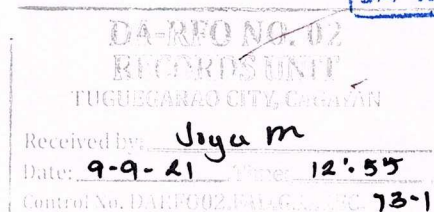 DA-RFO NO. 02
RECORDS UNIT
TUGUEGARAO CITY, CAGAYAN
Received by: Joya M
Date: 9-9-21 Time: 12:55
Control No. DARFO02 73-1